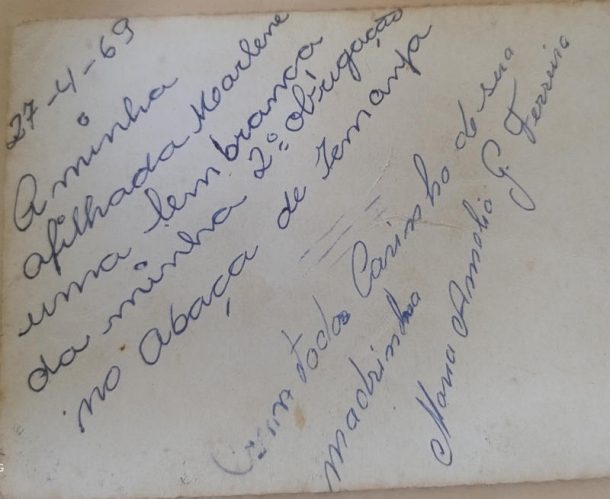 27-4-69
A minha
afilhada Mearlene
uma lembranca
da minha 2º obrigação
no abaça de Iemanja
Com todo Carinho de sua
madrinha
Maria Amelia G. Ferreira